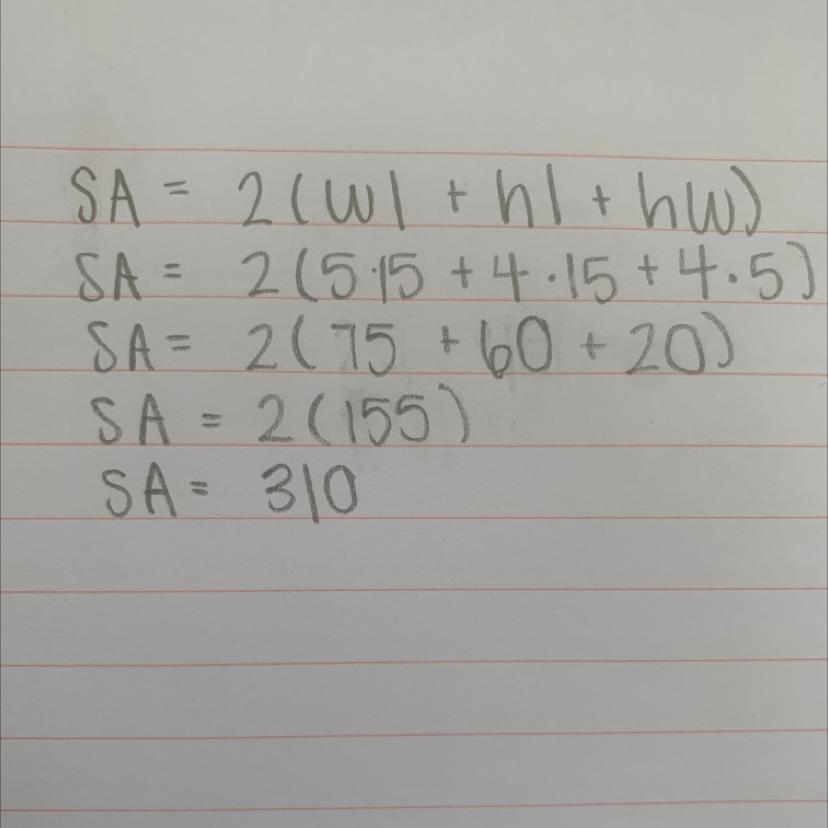 SA = 2(wl + hl + hw)
SA = 2(5·15 + 4·15 + 4·5)
SA = 2(75 + 60 + 20)
SA = 2(155)
SA = 310